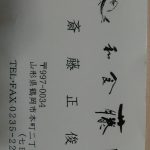 和食 藤
斎藤正俊
〒997-0034
山形県鶴岡市本町二丁
(七
TEL・FAX 0235-22